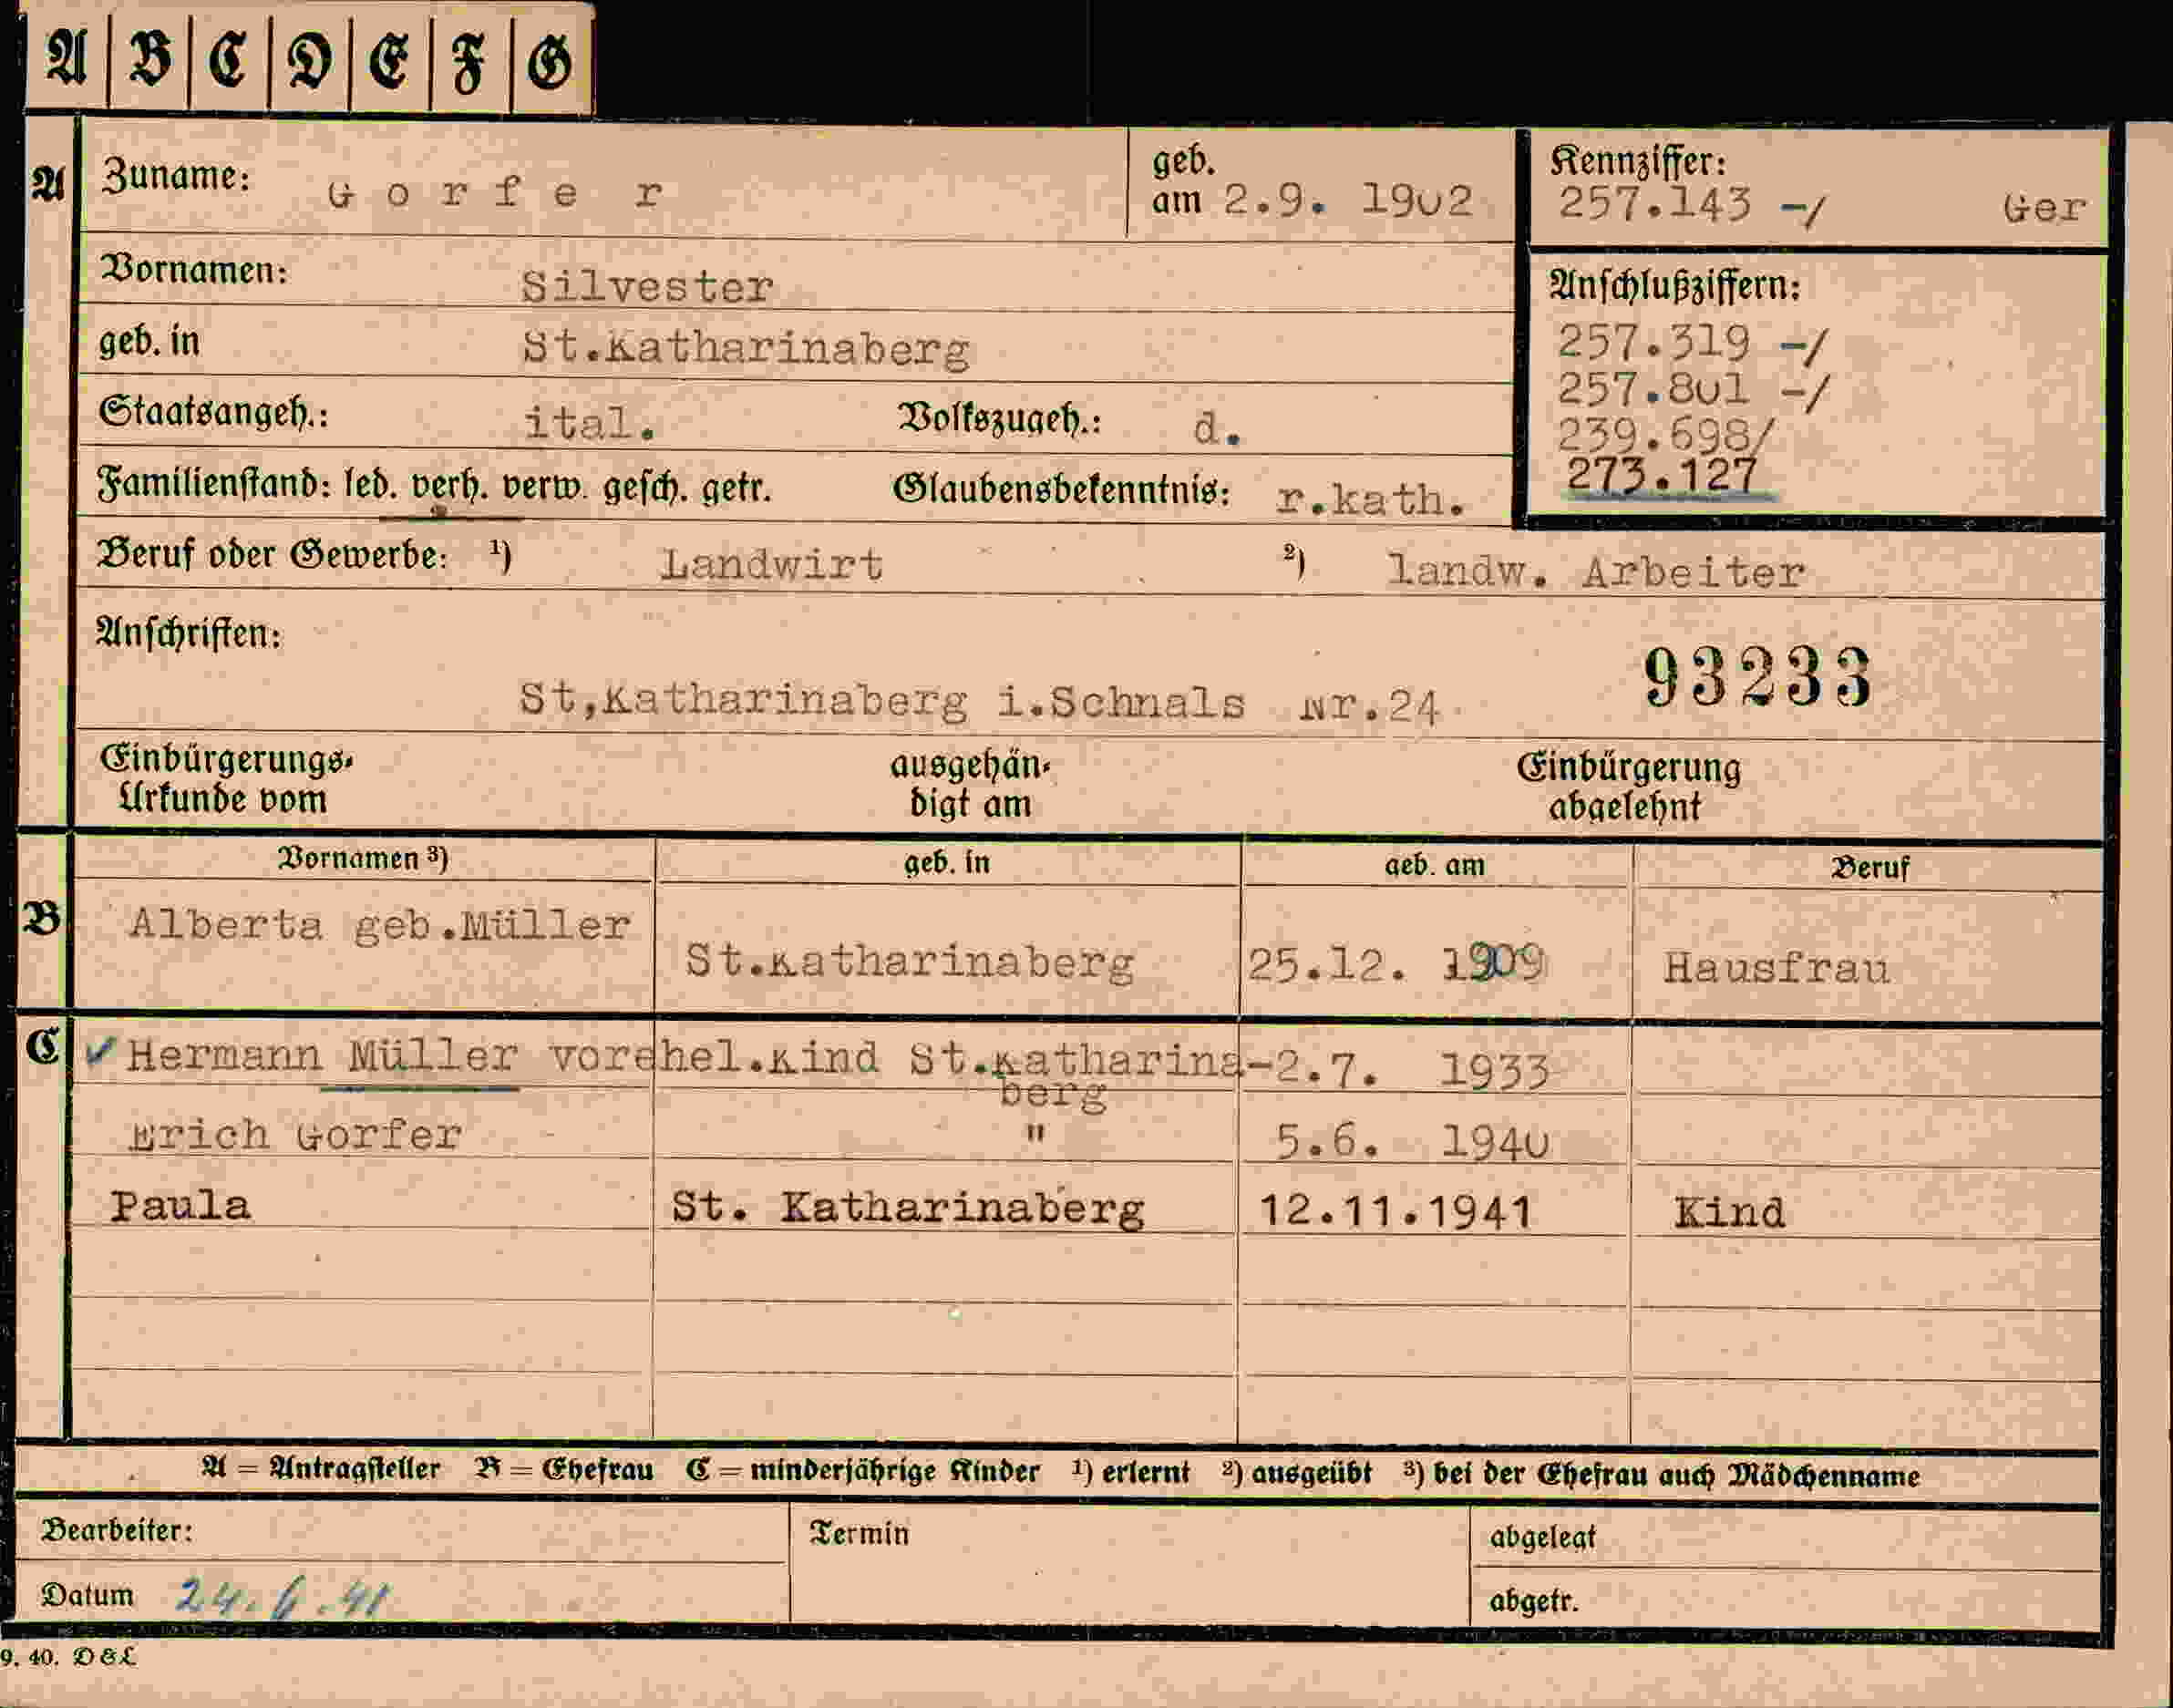 A B C D E F G
A Zuname: Gorfer geb. am 2.9. 1902 Kennziffer: 257.143 -/ Ger
Vornamen: Silvester Anschlußziffern:
geb. in St.Katharinaberg 257.319 -/
257.801 -/
Staatsangeh.: ital. Volkszugeh.: d. 239.698/
Familienstand: led. verh. verw. gesch. getr. Glaubensbekenntnis: r.kath. 273.127
Beruf oder Gewerbe: ¹) Landwirt ²) landw. Arbeiter
Anschriften:
St,Katharinaberg i.Schnals Nr.24 93233
Einbürgerungs- Urkunde vom ausgehän- digt am Einbürgerung abgelehnt
Vornamen ³) geb. in geb. am Beruf
B Alberta geb.Müller St.Katharinaberg 25.12. 1909 Hausfrau
C ✓ Hermann Müller vorehel.Kind St.Katharina- 2.7. 1933
berg
Erich Gorfer " 5.6. 1940
Paula St. Katharinaberg 12.11.1941 Kind
A = Antragsteller B = Ehefrau C = minderjährige Kinder ¹) erlernt ²) ausgeübt ³) bei der Ehefrau auch Mädchenname
Bearbeiter: Termin abgelegt
Datum 24.6.41 abgetr.
9. 40. D&L